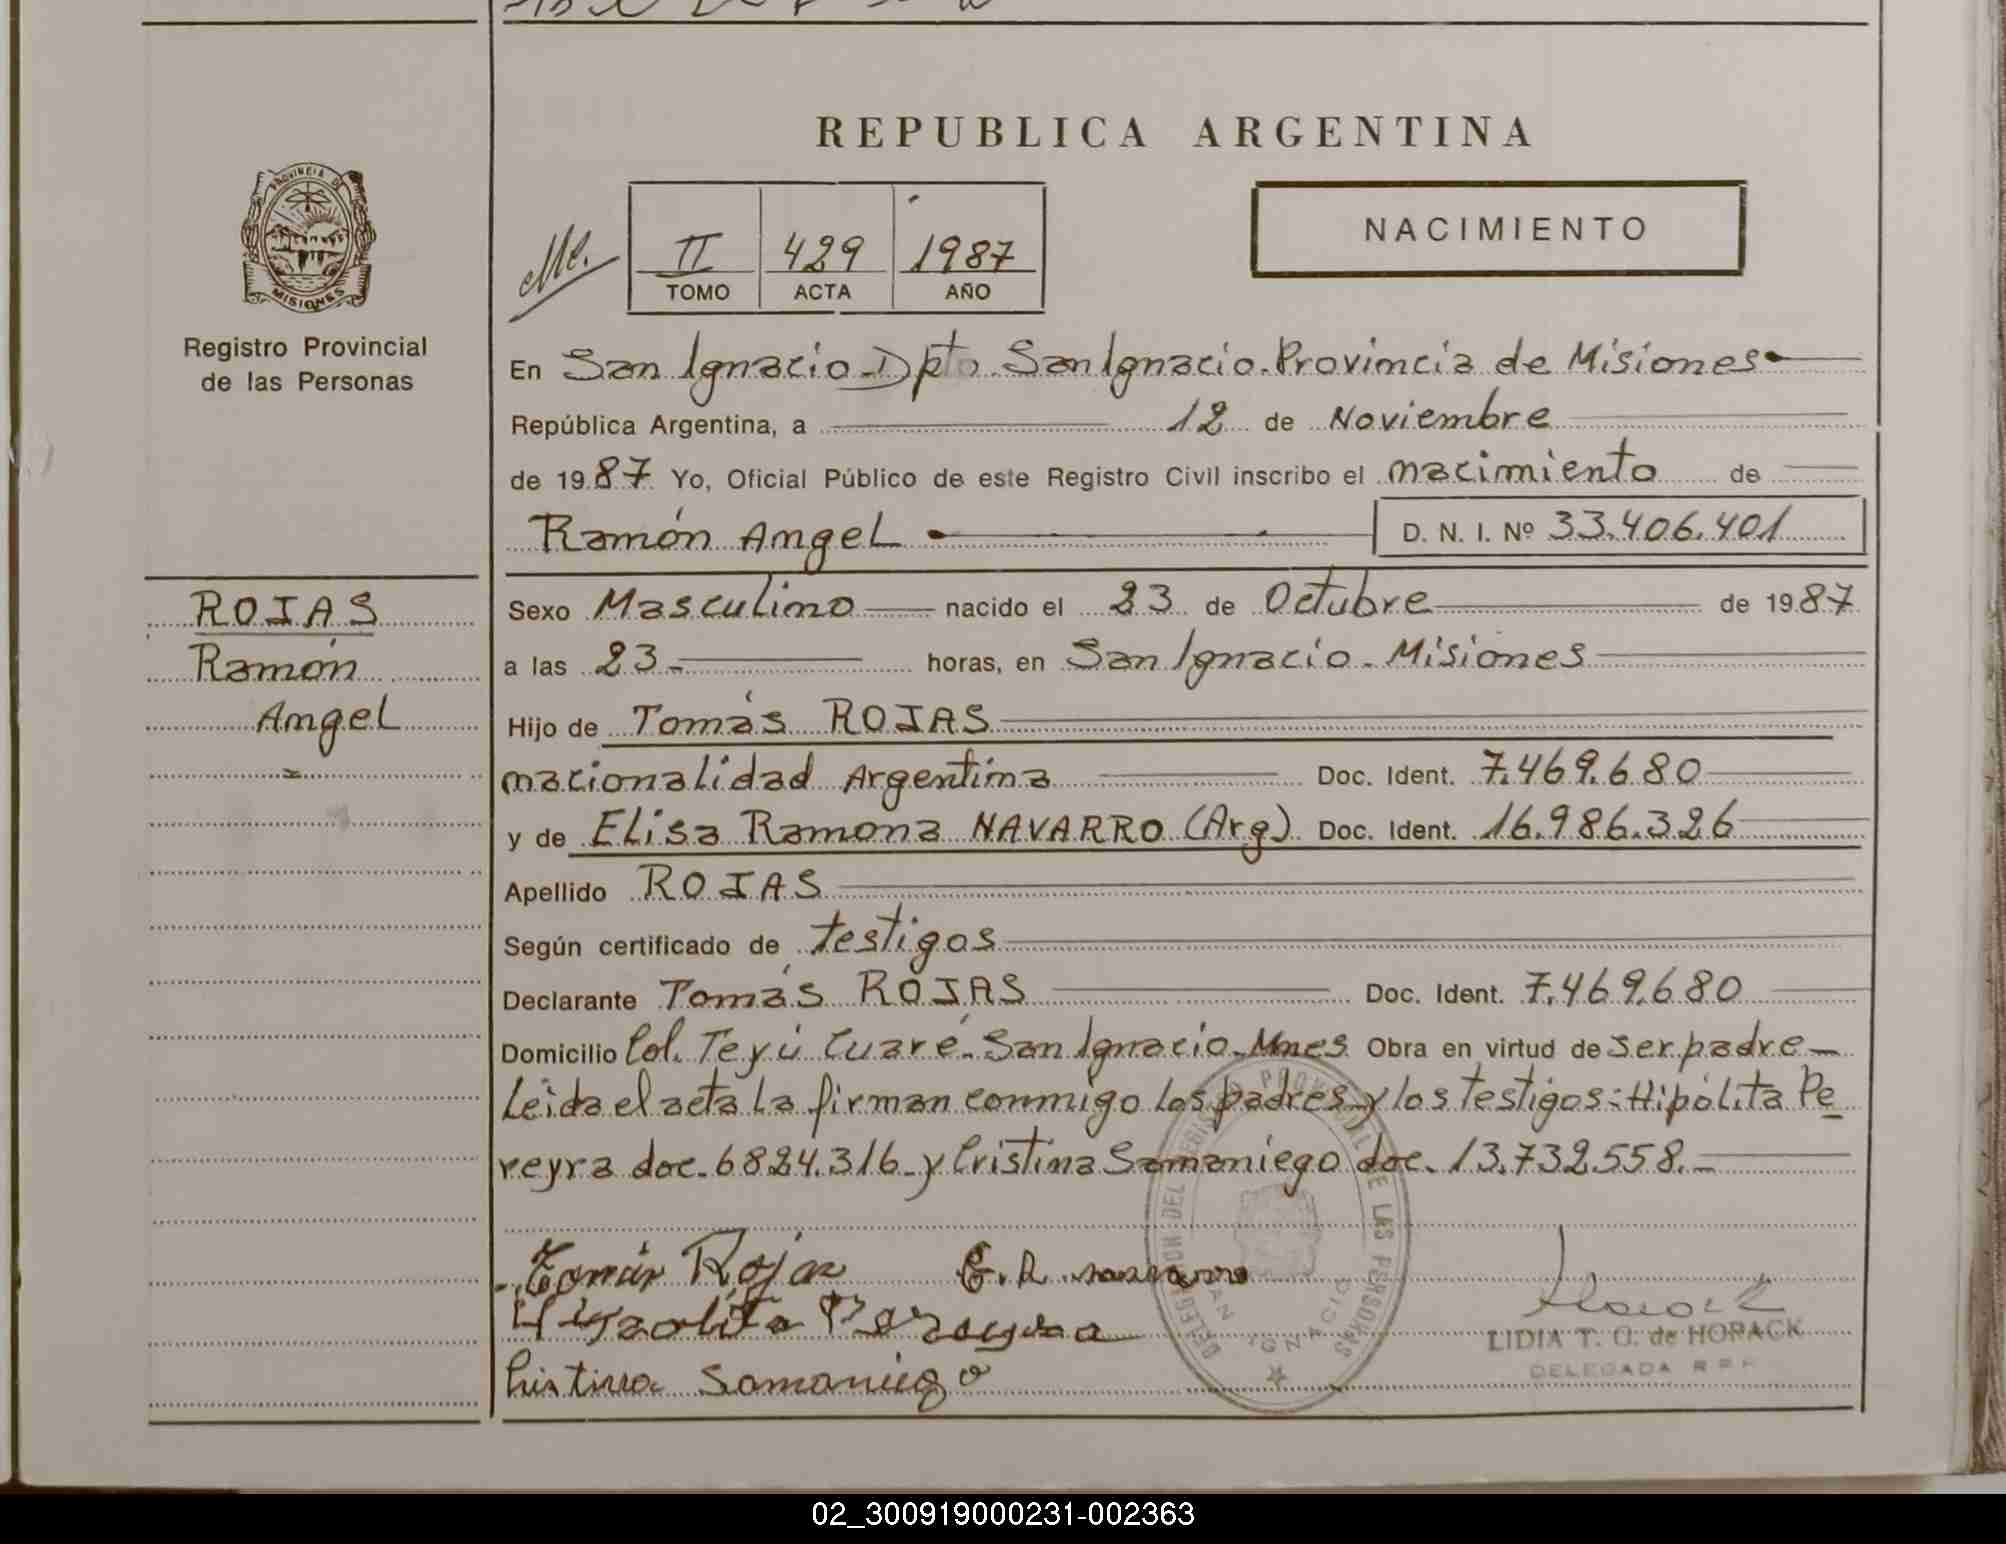 REPUBLICA ARGENTINA
PROVINCIA DE MISIONES
Registro Provincial
de las Personas
NACIMIENTO
II 429 1987
TOMO ACTA AÑO
En San Ignacio - Dpto San Ignacio - Provincia de Misiones
República Argentina, a 12 de Noviembre
de 1987 Yo, Oficial Público de este Registro Civil inscribo el nacimiento de
Ramón Angel D. N. I. Nº 33.406.401
ROJAS
Ramón
Angel
Sexo Masculino nacido el 23 de Octubre de 1987
a las 23 - horas, en San Ignacio - Misiones
Hijo de Tomás ROJAS
nacionalidad Argentina Doc. Ident. 7.469.680
y de Elisa Ramona NAVARRO (Arg) Doc. Ident. 16.986.326
Apellido ROJAS
Según certificado de testigos
Declarante Tomás ROJAS Doc. Ident. 7.469.680
Domicilio Col. Teyú Cuaré - San Ignacio - Mnes Obra en virtud de ser padre -
Leida el acta la firman conmigo los padres y los testigos: Hipólita Pe
reyra doc. 6824.316 - y Cristina Samaniego doc. 13.732.558. -
Tomás Rojas E. R. navarro
Hipolita Pereyra
Cristina Samaniego
DELEGACION DEL REGISTRO PROVINCIAL DE LAS PERSONAS
SAN IGNACIO
LIDIA T. O. de HORACK
DELEGADA R P P
02_300919000231-002363